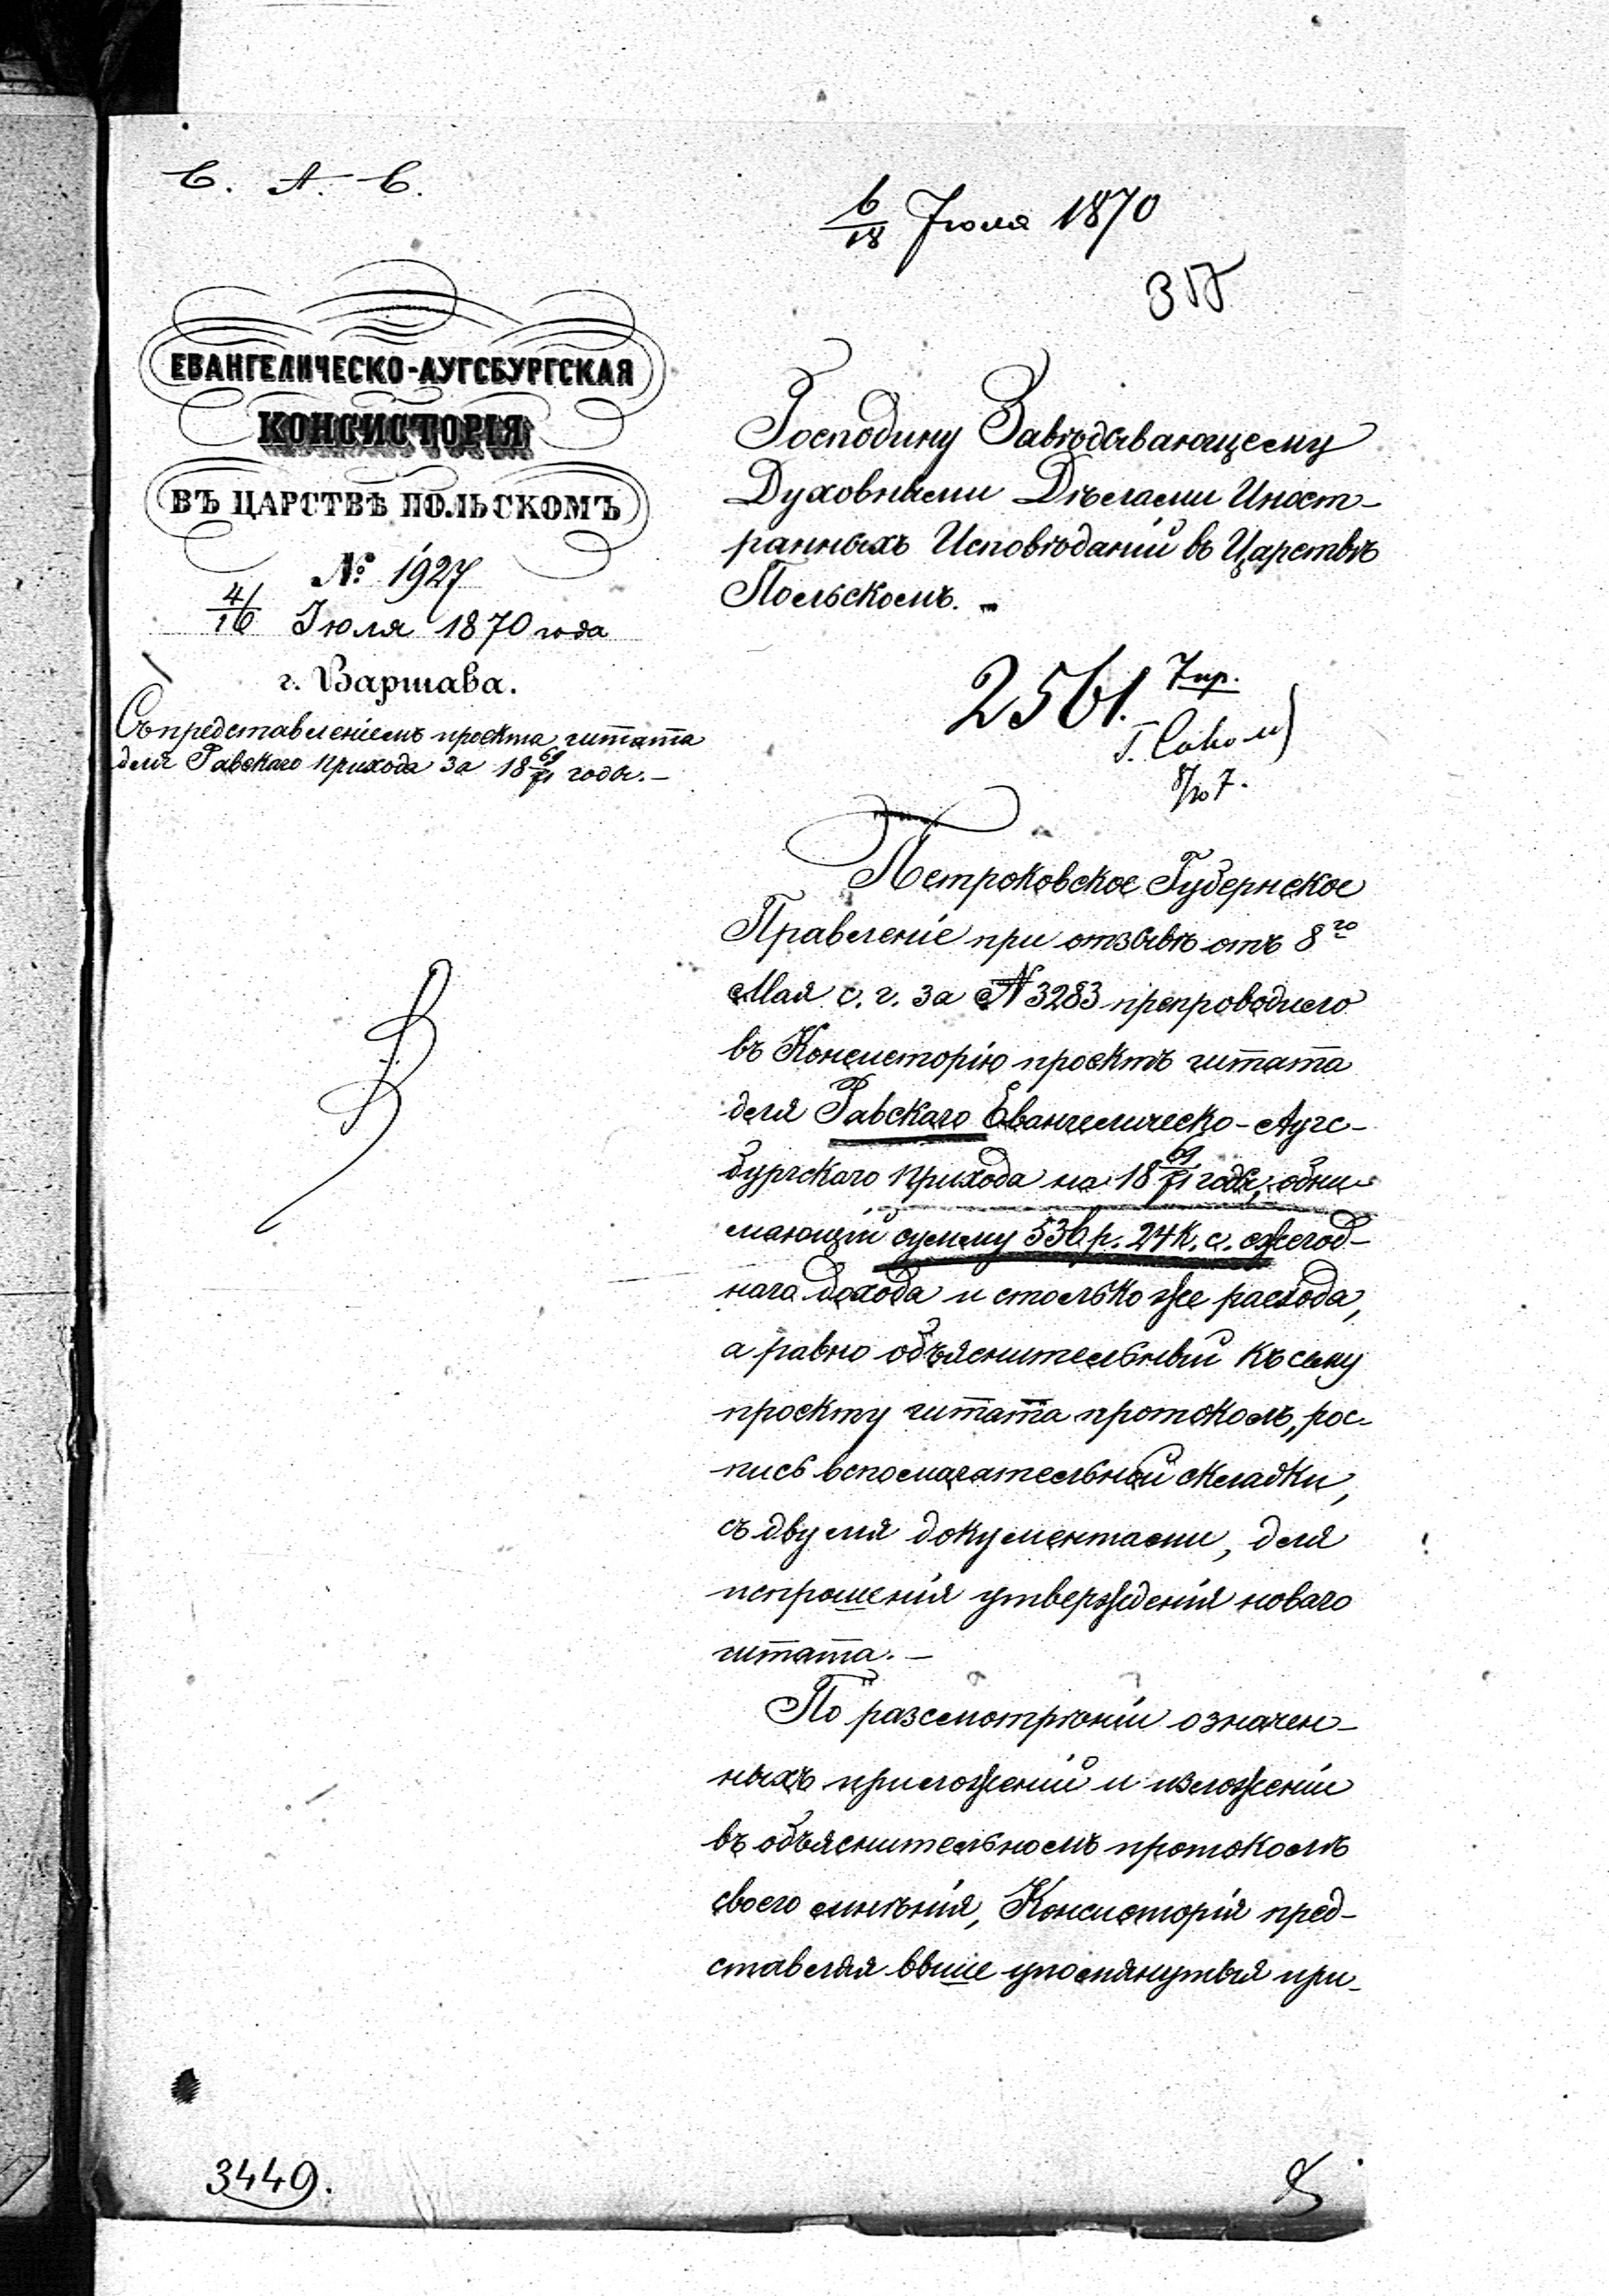 С. А. С.
6/18 Июля 1870
317
ЕВАНГЕЛИЧЕСКО-АУГСБУРГСКАЯ
КОНСИСТОРІЯ
ВЪ ЦАРСТВѢ ПОЛЬСКОМЪ
№ 1927
4/16 Июля 1870 года
г. Варшава.
Съ представленіемъ проекта штата
для Равскаго прихода за 18 69/71 годы.—
Господину Завѣдывающему
Духовными Дѣлами Иност-
ранныхъ Исповѣданій въ Царствѣ
Польскомъ.
2561.
8/20 7.
Петроковское Губернское
Правленіе при отзывѣ отъ 8го
Мая с. г. за № 3283 препроводило
въ Консисторію проектъ штата
для Равскаго Евангелическо-Аугс-
бургскаго прихода на 18 69/71 годы, обни-
мающій сумму 536 р. 24 к. с. ежегод-
наго дохода и столько же расхода,
а равно объяснительный къ сему
проекту штата протоколъ, рос-
пись вспомагательной складки,
съ двумя документами, для
испрошенія утвержденія новаго
штата.—
По разсмотрѣніи означен-
ныхъ приложеній и изложеніи
въ объяснительномъ протоколѣ
своего мнѣнія, Консисторія пред-
ставляя выше упомянутыя при-
3449.